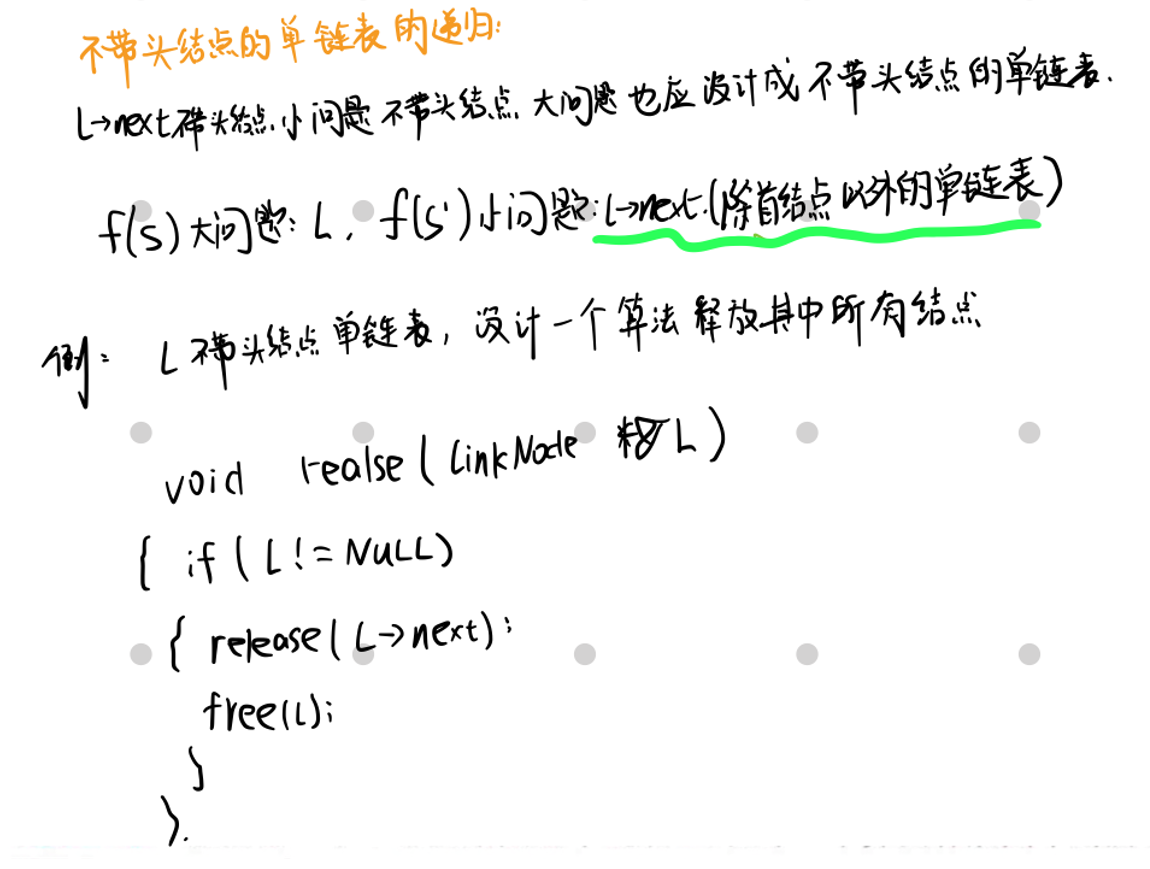 不带头结点的单链表的递归:
L→next不带头结点,小问题不带头结点,大问题也应设计成不带头结点的单链表.
f(s)大问题:L, f(s')小问题:L→next.(除首结点以外的单链表)
例: L不带头结点单链表,设计一个算法释放其中所有结点
void realse(LinkNode * L)
{ if(L!=NULL)
{ release(L→next);
free(L);
}
}.